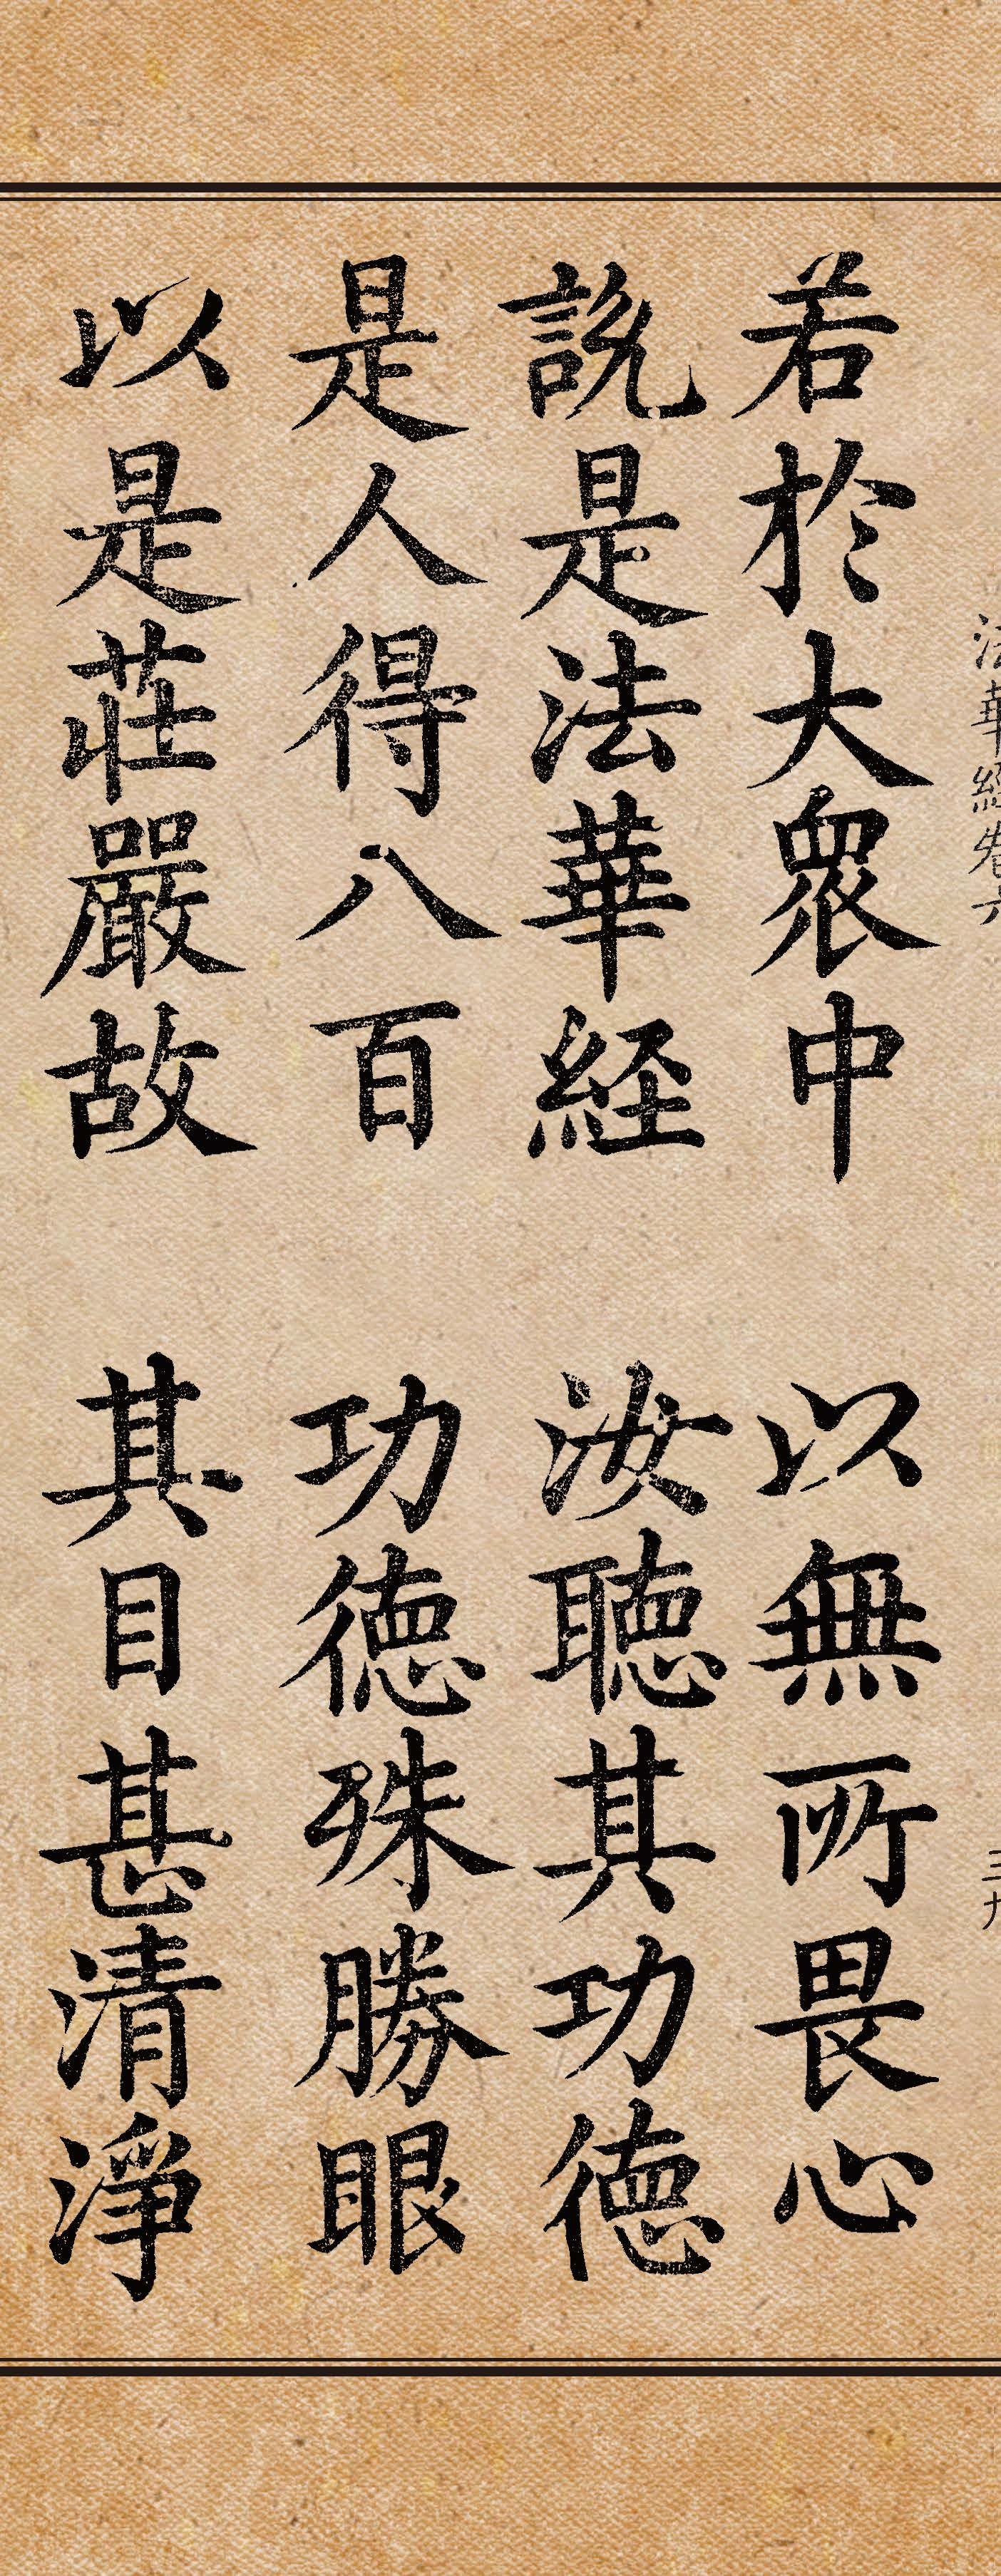 法華經卷六 三九
若於大衆中 以無所畏心
說是法華経 汝聴其功徳
是人得八百 功徳殊勝眼
以是莊嚴故 其目甚清淨